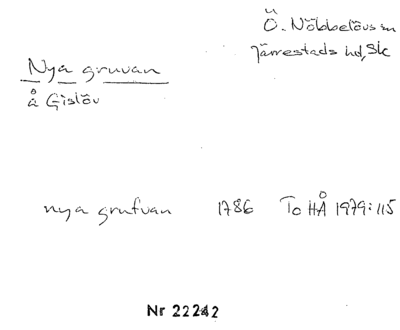 Ö. Nöbbelövs sn
Järrestads hd, Sk
Nya gruvan
å Gislöv
nya grufvan 1786 To HÅ 1979:115
Nr 22242